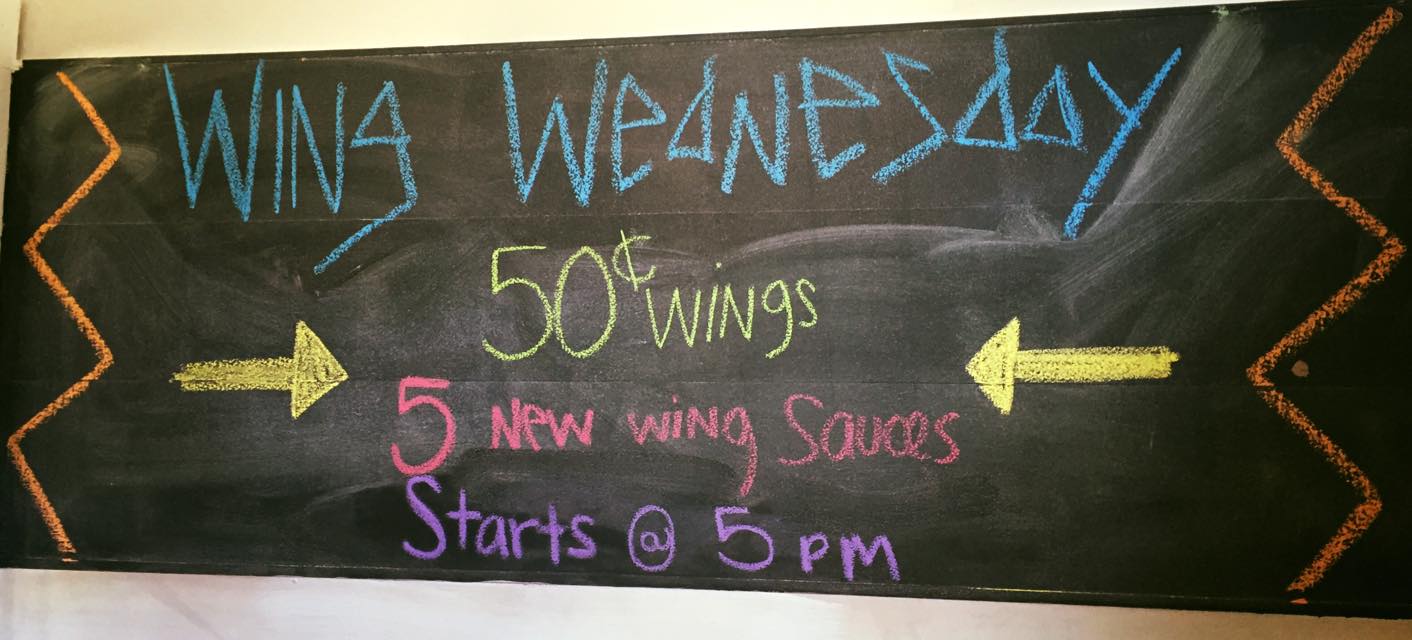 Wing Wednesday
50¢ wings
5 New wing Sauces
Starts @ 5 pm